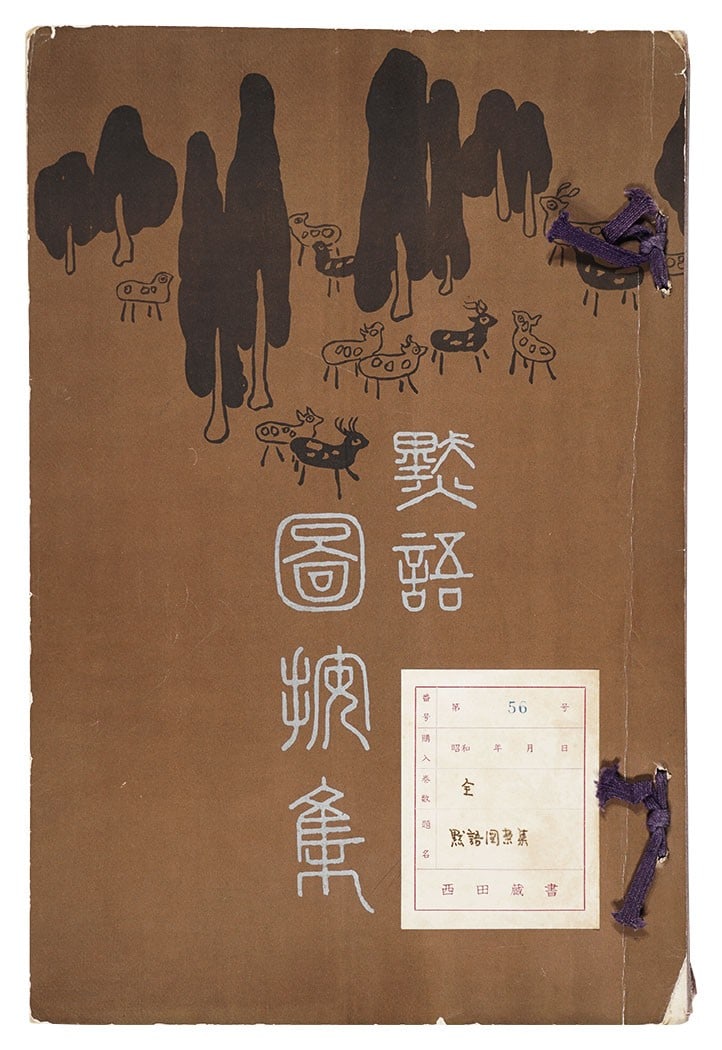 默語
圖按集
番号 第 56 号
購入 昭和 年 月 日
巻数 全
題名 默語図案集
西田蔵書